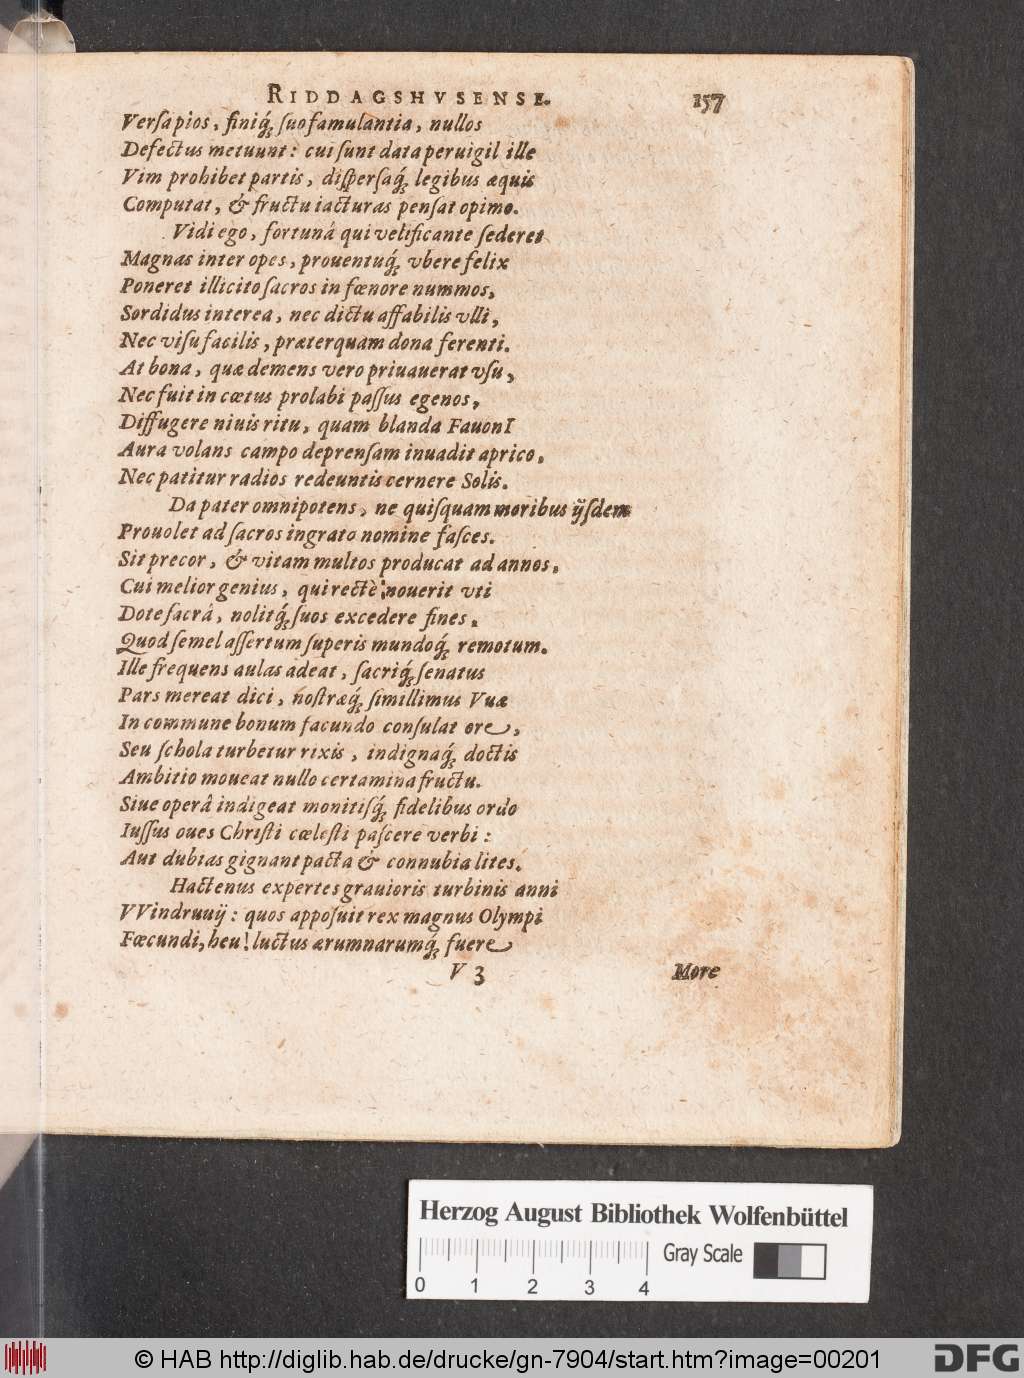 RIDDAGSHVSENSE. 157
Verſa pios, finiq́; ſuo famulantia, nullos
Defectus metuunt: cui ſunt data peruigil ille
Vim prohibet partis, diſperſaq́; legibus æquis
Computat, & fructu iacturas penſat opimo.
Vidi ego, fortunâ qui velificante ſederet
Magnas inter opes, prouentuq́; vbere felix
Poneret illicito ſacros in fœnore nummos,
Sordidus interea, nec dictu affabilis vlli,
Nec viſu facilis, præterquam dona ferenti.
At bona, quæ demens vero priuauerat vſu,
Nec fuit in cœtus prolabi paſſus egenos,
Diffugere niuis ritu, quam blanda FauonI
Aura volans campo deprenſam inuadit aprico,
Nec patitur radios redeuntis cernere Solis.
Da pater omnipotens, ne quiſquam moribus ijſdem
Prouolet ad ſacros ingrato nomine faſces.
Sit precor, & vitam multos producat ad annos,
Cui melior genius, qui rectè nouerit vti
Dote ſacrâ, nolitq́; ſuos excedere fines,
Quod ſemel aſſertum ſuperis mundoq́; remotum.
Ille frequens aulas adeat, ſacriq́; ſenatus
Pars mereat dici, noſtræq́; ſimillimus Vuæ
In commune bonum facundo conſulat ore,
Seu ſchola turbetur rixis, indignaq́; doctis
Ambitio moueat nullo certamina fructu.
Siue operâ indigeat monitiſq́; fidelibus ordo
Iuſſus oues Chriſti cœleſti paſcere verbi:
Aut dubias gignant pacta & connubia lites.
Hactenus expertes grauioris turbinis anni
VVindruuij: quos appoſuit rex magnus Olympi
Fœcundi, heu! luctus ærumnarumq́; fuere
V 3 More
Herzog August Bibliothek Wolfenbüttel
0 1 2 3 4 Gray Scale
© HAB http://diglib.hab.de/drucke/gn-7904/start.htm?image=00201 DFG